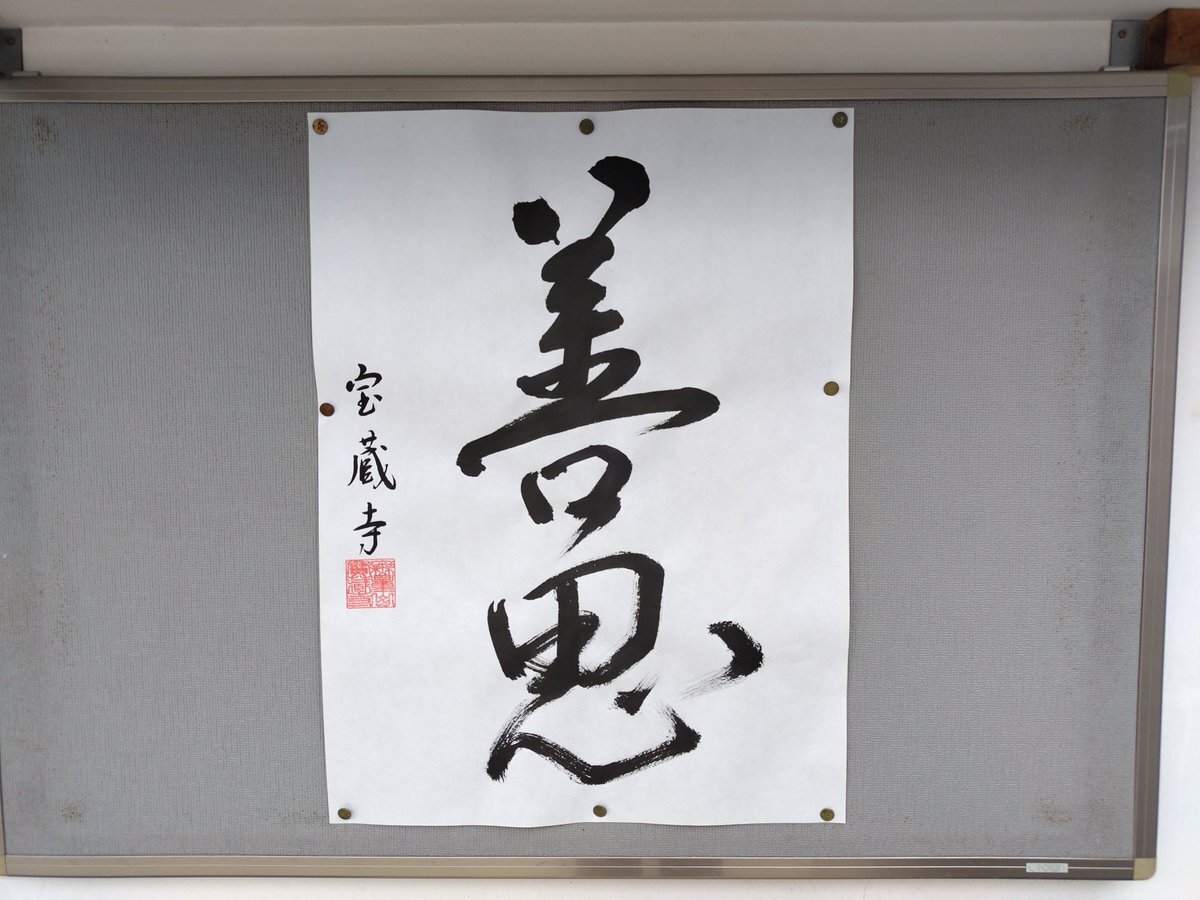 善思
宝蔵寺